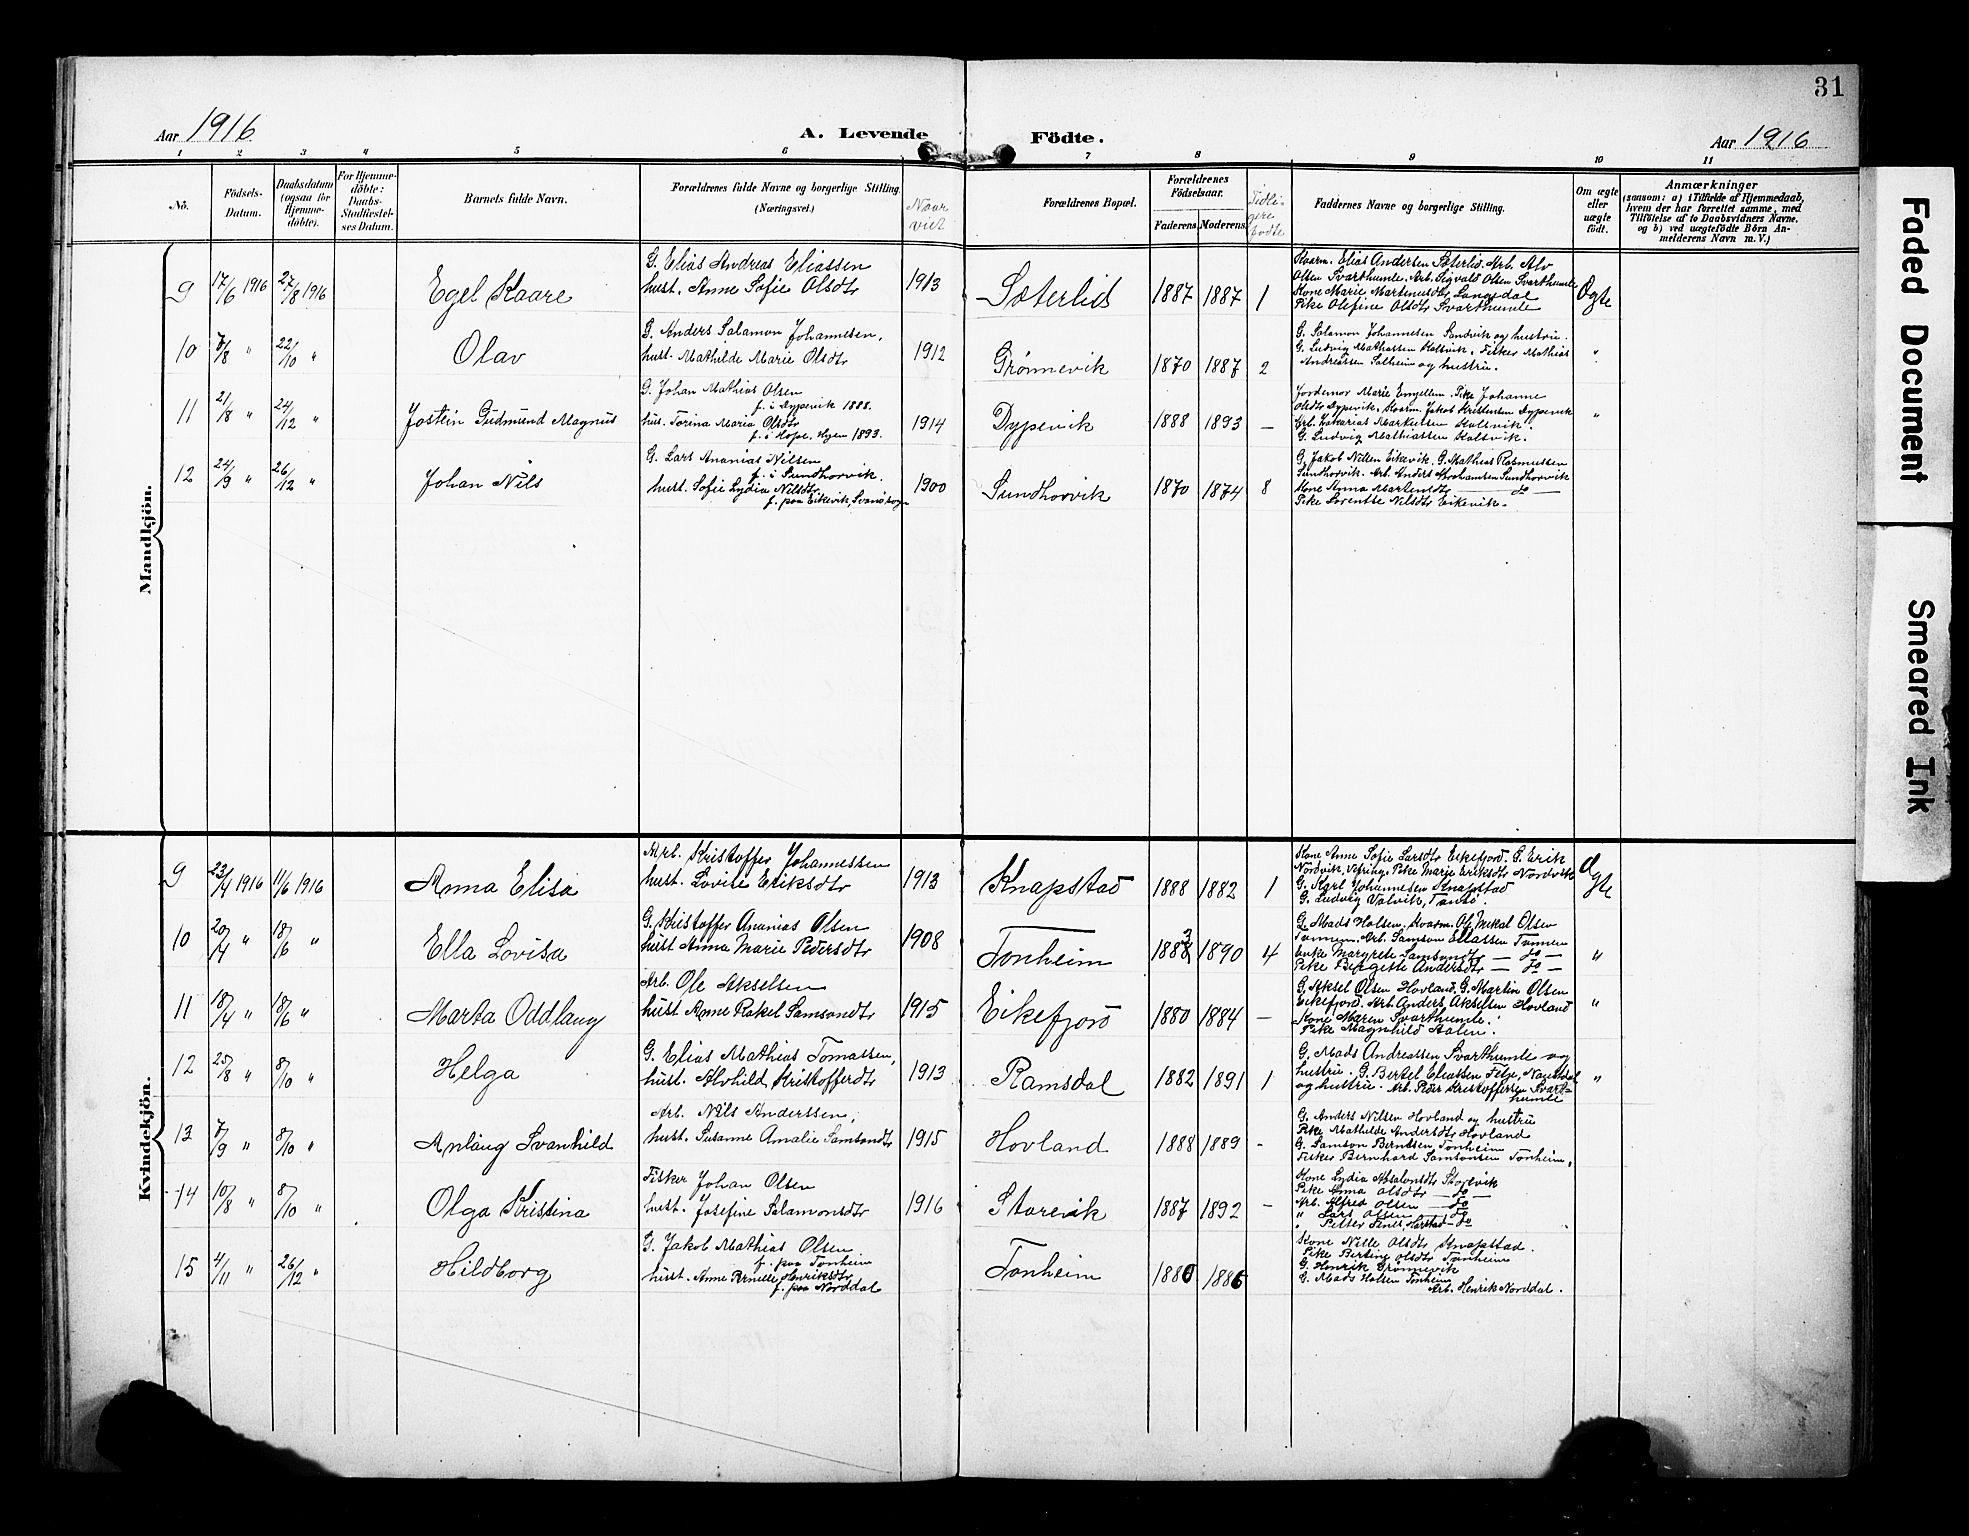 31
Aar 1916
A. Levende Födte.
Aar 1916
1 2 3 4 5 6 7 8 9 10 11
No.
Födsels-
Datum.
Daabsdatum
(ogsaa for
Hjemme-
döbte).
For Hjemme-
döbte:
Daabs-
Stadfæstel-
ses Datum.
Barnets fulde Navn.
Forældrenes fulde Navne og borgerlige Stilling.
(Næringsvei.)
Naar
viet
Forældrenes Bopæl.
Forældrenes
Födselsaar.
Faderens. Moderens.
Tidli-
gere
födte
Faddernes Navne og borgerlige Stilling.
Om ægte
eller
uægte
födt.
Anmærkninger
(saasom: a) i Tilfælde af Hjemmedaab,
hvem der har forrettet samme, med
Tilföielse af to Daabsvidners Navne,
og b) ved uægtefödte Börn An-
melderens Navn m. V.)
Mandkjön.
9 17/6 1916 27/8 1916 Egel Kaare
G. Elias Andreas Eliassen
hust. Anne Sofie Olsdtr
1913 Sæterlid 1887 1887 1
Kaarm. Elias Andersen Sæterlid. Arb. Alv
Olsen Svarthumle. Arb. Sigvald Olsen Svarthumle
Kone Marie Martinusdtr Langedal
Pike Olefine Olsdtr Svarthumle
Ægte
10 7/8 " 22/10 " Olav
G. Anders Salamon Johannesen,
hust. Mathilde Marie Olsdtr
1912 Grönnevik 1870 1887 2
G. Salamon Johannesen Sandvik og hustru.
G. Ludvig Mathiassen Kolsvik. Fisker Mathias
Andreassen Solheim og hustru.
"
11 21/8 " 24/12 " Jostein Gudmund Magnus
G. Johan Mathias Olsen
f. i Dypevik 1888.
hus. Torina Maria Olsdtr
f. i Hope, Hyen 1893.
1914 Dypevik 1888 1893 —
Jordemor Marie Engellem. Pike Johanne
Olsdtr Dypevik. Kaarm. Jakob Kristensen Dypevik
Arb. Zakarias Markussen Kolsvik.
G. Ludvig Mathiassen Kolsvik.
"
12 24/9 " 26/12 " Johan Nils
G. Lars Ananias Nilsen
f. i Sundhorvik.
hust. Sofie Lydia Nilsdtr
f. paa Eikevik,
1900 Sundhorvik 1870 1874 8
G. Jakob Nilsen Eikevik. G. Mathias Rasmussen
Sundhorvik. Arb. Anders Abrahamsen Sundhorvik
Kone Anna Martensdtr — do —
Pike Lorentse Nilsdtr Eikevik.
Kvindekjön.
9 23/4 1916 11/6 1916 Anna Elisa
Arb. Kristoffer Johannessen
hust. Lovise Eriksdtr
1913 Knapstad 1888 1882 1
Kone Anne Sofie Larsdtr Eikefjord. G. Erik
Nordvik, Vefring. Pike Marie Eriksdtr Nordvik
G. Karl Johannesen Knapstad
G. Ludvig Valvik, Tansö.
Ægte
10 20/4 " 18/6 " Ella Lovisa
G. Kristoffer Ananias Olsen
hust Anna Marie Pedersdtr
1908 Tonheim 1883 1890 4
G. Mads Holsen. Kaarm. Mikal Olsen
Tonnem. Arb. Samson Eliassen Tonnem
Enke Margrete Samsondtr — do —
Pike Bergitte Andersdtr — do —
"
11 18/4 " 18/6 " Marta Oddlaug
Arb. Ole Akselsen
hust Anne Rakel Samsondtr
1915 Eikefjord 1880 1884 —
G. Aksel Olsen Hovland. G. Martin Olsen
Eikefjord. Arb. Anders Akselsen Hovland
Kone Maren Svarthumle.
Pike Magnhild Aalen.
"
12 25/8 " 8/10 " Helga
G. Elias Mathias Tomassen,
hust. Alvhild Kristofferdtr
1913 Ramsdal 1882 1891 1
G. Mads Andreassen Svarthumle og
hustru. G. Bertel Eliassen Naustdal
og hustru. Arb. Peder Kristoffersen Svart-
humle
"
13 7/9 " 8/10 " Anlaug Svanhild
Arb. Nils Anderssen,
hust. Susanne Amalie Samsondtr
1915 Hovland 1888 1889 -
G. Anders Nilsen Hovland og hustru
Pike Mathilde Andersdtr Hovland
G. Samson Berntsen Tonheim
Fisker Bernhard Samsonsen Tonheim.
14 10/8 " 8/10 " Olga Kristina
Fisker Johan Olsen
hust. Josefine Salamonsdtr
1916 Storevik 1887 1892 —
Kone Lydia Absalonsdtr Storevik
Pike Anna Olsdtr — do —
Arb. Alfred Olsen — do
" Lars Olsen — do
" Petter — do
15 4/11 " 26/12 " Hildborg
G. Jakob Mathias Olsen
f. paa Tonheim
hust. Anne Pernelle Henriksdtr
f. paa Norddal
Tonheim 1880 1886
Kone Nille Olsdtr Knapstad.
Pike Bertine Olsdtr Tonheim
G. Henrik Grönnevik
G. Mads Holsen Tonheim
Arb. Henrik Norddal.
Faded Document
Smeared Ink